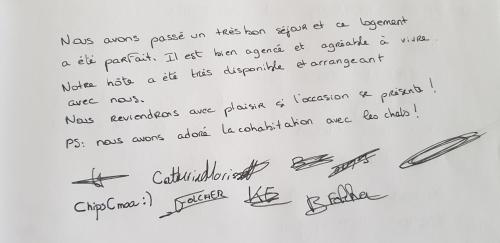 Nous avons passé un très bon séjour et ce logement
a été parfait. Il est bien agencé et agréable à vivre.
Notre hôte a été très disponible et arrangeant
avec nous.
Nous Reviendrons avec plaisir si l'occasion se présente !
PS: nous avons adoré la cohabitation avec les chats !
ChipsCmoa :)